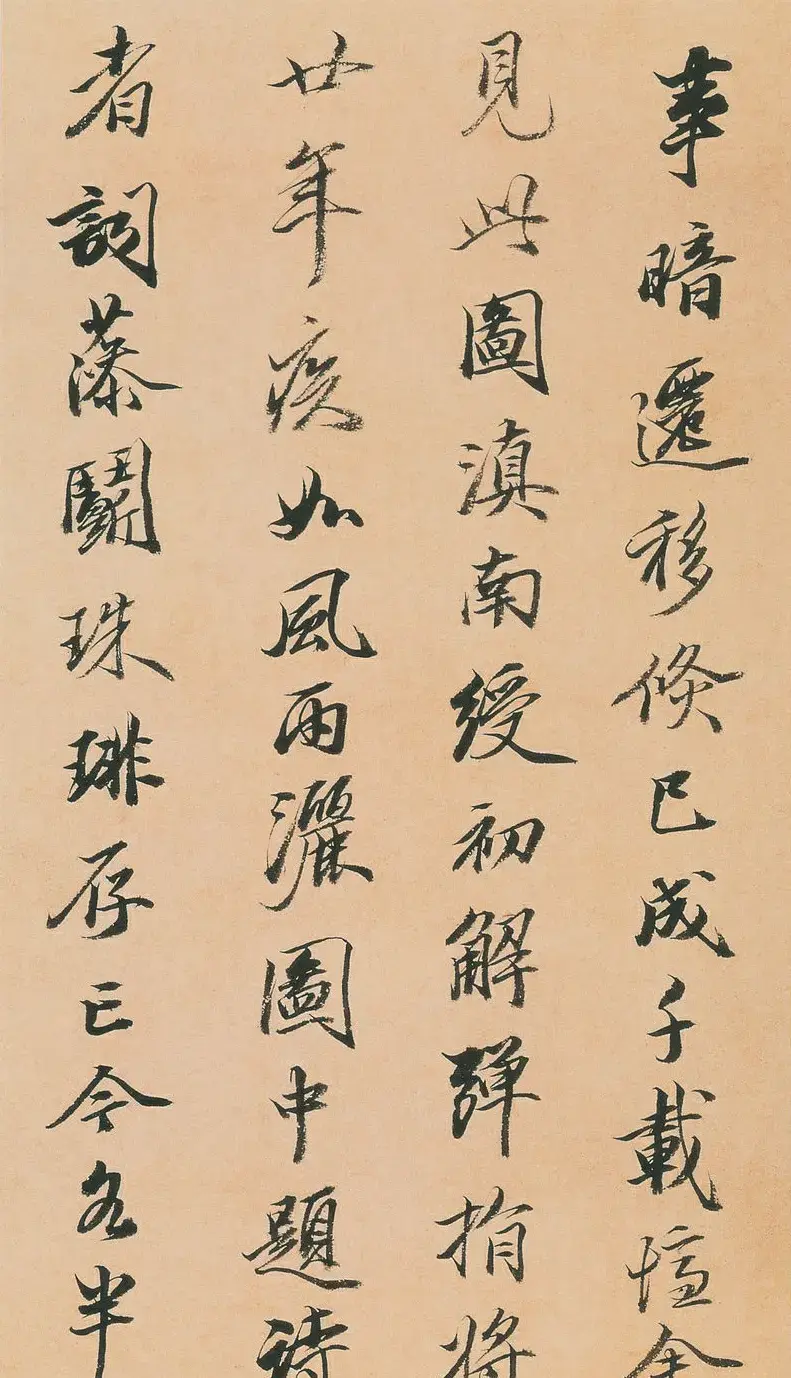 事暗遷移倏已成千載憶余
見此圖滇南綬初解彈指將
廿年疾如風雨灑圖中題詩
者詞藻鬬珠琲存亡今各半